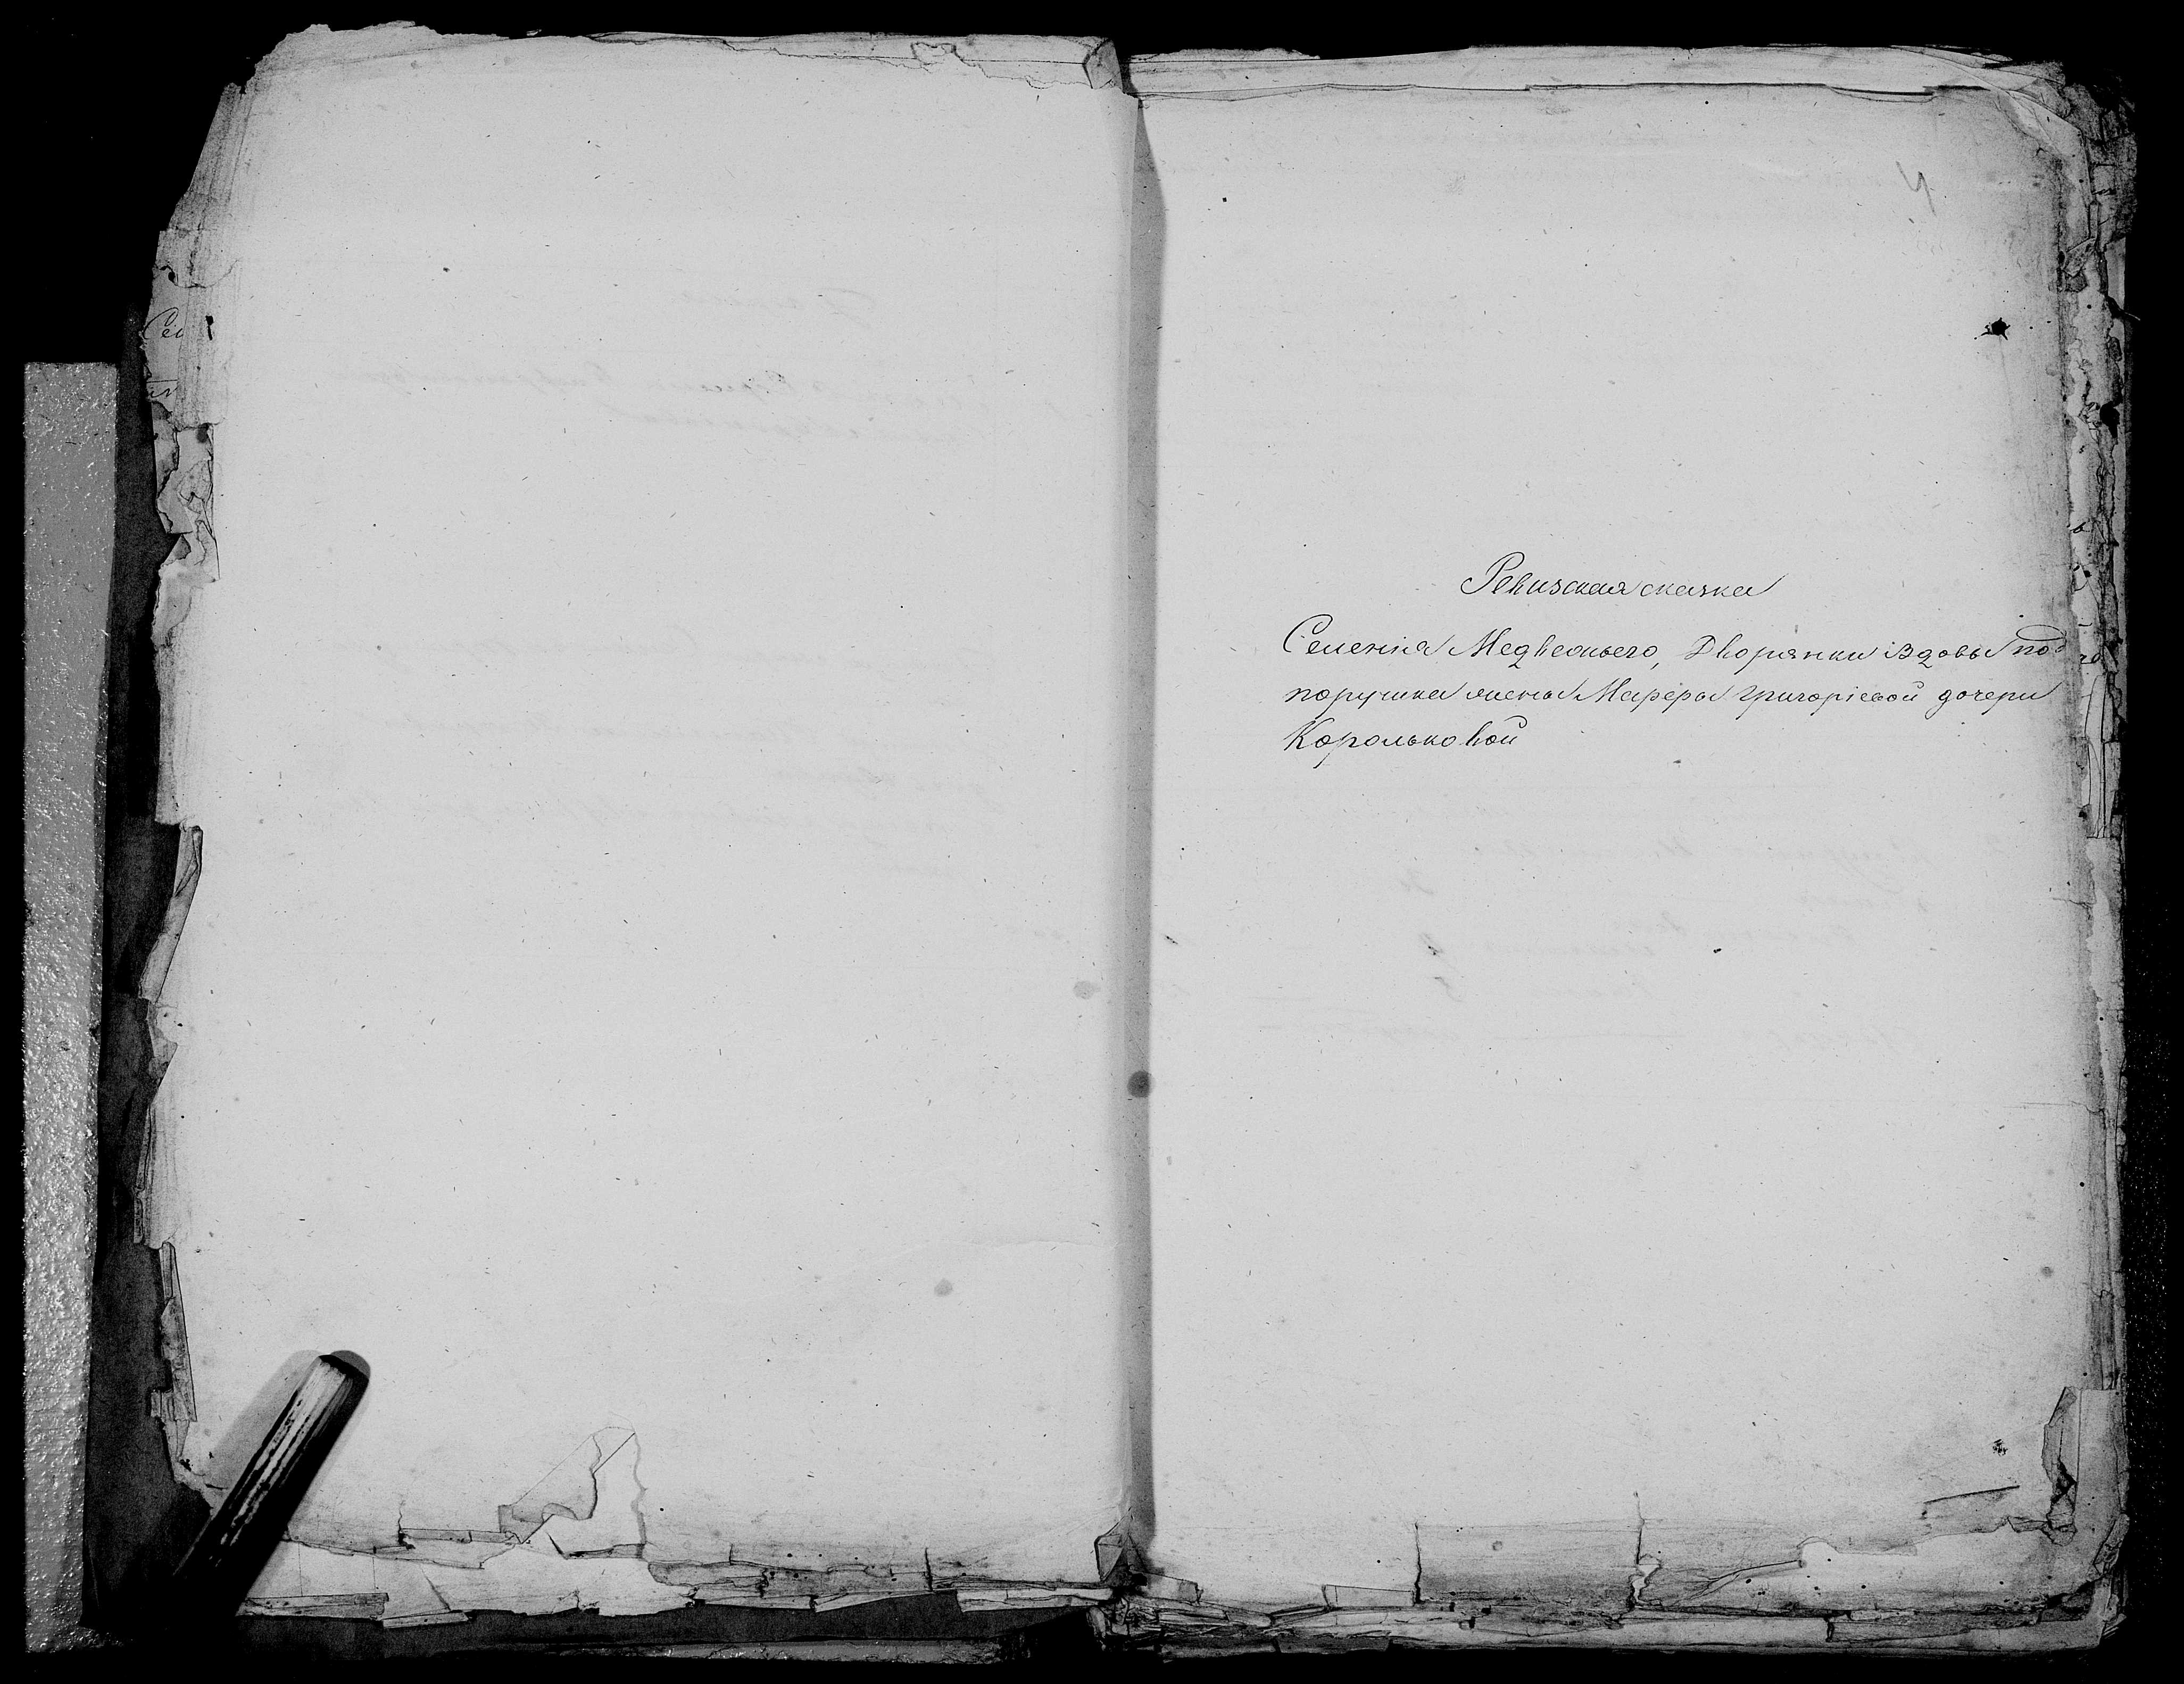 Ревизская сказка
Селенія Медвежьего, Дворянки Вдовы под
порушка жены Марфры григоріевой дочери
Корольковой